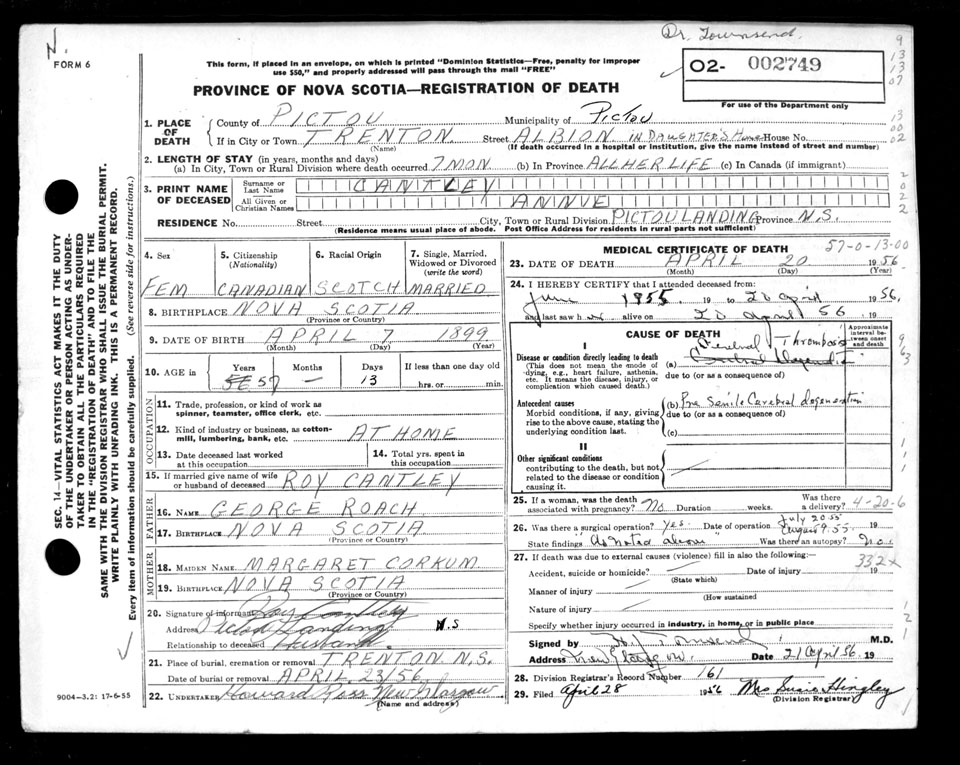 Dr. Townsend
N.
FORM 6
This form, if placed in an envelope, on which is printed "Dominion Statistics—Free, penalty for improper
use $50," and properly addressed will pass through the mail "FREE"
O2- 002749
For use of the Department only
PROVINCE OF NOVA SCOTIA—REGISTRATION OF DEATH
1. PLACE OF DEATH
County of PICTOU Municipality of Pictou
If in City or Town TRENTON Street ALBION IN DAUGHTERS Home House No.
(Name) (If death occurred in a hospital or institution, give the name instead of street and number)
2. LENGTH OF STAY (in years, months and days)
(a) In City, Town or Rural Division where death occurred 7 MON (b) In Province ALL HER LIFE (c) In Canada (if immigrant)
3. PRINT NAME OF DECEASED
Surname or Last Name CANTLEY
All Given or Christian Names ANNVE
RESIDENCE No. Street City, Town or Rural Division PICTOU LANDING Province N.S.
(Residence means usual place of abode. Post Office Address for residents in rural parts not sufficient)
4. Sex 5. Citizenship (Nationality) 6. Racial Origin 7. Single, Married, Widowed or Divorced (write the word)
FEM CANADIAN SCOTCH MARRIED
8. BIRTHPLACE NOVA SCOTIA
(Province or Country)
9. DATE OF BIRTH APRIL 7 1899
(Month) (Day) (Year)
10. AGE IN Years Months Days If less than one day old
57 — 13 hrs. or min.
OCCUPATION
11. Trade, profession, or kind of work as spinner, teamster, office clerk, etc.
12. Kind of industry or business, as cotton-mill, lumbering, bank, etc. AT HOME
13. Date deceased last worked at this occupation
14. Total yrs. spent in this occupation
15. If married give name of wife or husband of deceased ROY CANTLEY
FATHER
16. NAME GEORGE ROACH
17. BIRTHPLACE NOVA SCOTIA
(Province or Country)
MOTHER
18. MAIDEN NAME MARGARET CORKUM
19. BIRTHPLACE NOVA SCOTIA
(Province or Country)
20. Signature of informant Roy Cantley
Address Pictou Landing N.S
Relationship to deceased Husband
21. Place of burial, cremation or removal TRENTON N.S.
Date of burial or removal APRIL 23/56
22. UNDERTAKER Howard Ross New Glasgow
(Name and address)
MEDICAL CERTIFICATE OF DEATH 57-0-13-00
23. DATE OF DEATH APRIL 20 1956
(Month) (Day) (Year)
24. I HEREBY CERTIFY that I attended deceased from:
June 1955 19 to 20 April 1956,
and last saw her alive on 20 April 56 19
CAUSE OF DEATH
Approximate interval between onset and death
I
Disease or condition directly leading to death
(This does not mean the mode of dying, e.g., heart failure, asthenia, etc. It means the disease, injury, or complication which caused death.)
(a) Cerebral Thrombosis
due to (or as a consequence of)
Antecedent causes
Morbid conditions, if any, giving rise to the above cause, stating the underlying condition last.
(b) Pre Senile Cerebral degeneration
due to (or as a consequence of)
(c)
II
Other significant conditions
contributing to the death, but not related to the disease or condition causing it.
25. If a woman, was the death associated with pregnancy? No Duration weeks. Was there a delivery? 4-20-6
26. Was there a surgical operation? Yes Date of operation July 20 55 August 9.55 19
State findings "As noted above" Was there an autopsy? No.
27. If death was due to external causes (violence) fill in also the following:— 332x
Accident, suicide or homicide? Date of injury 19
(State which)
Manner of injury
(How sustained
Nature of injury
Specify whether injury occurred in industry, in home, or in public place
Signed by Townsend M.D.
Address New Glasgow Date 21 April 56 19
28. Division Registrar's Record Number 161
29. Filed April 28 1956 Mrs Susie Hingley
(Division Registrar)
SEC. 14—VITAL STATISTICS ACT MAKES IT THE DUTY
OF THE UNDERTAKER OR PERSON ACTING AS UNDER-
TAKER TO OBTAIN ALL THE PARTICULARS REQUIRED
IN THE "REGISTRATION OF DEATH" AND TO FILE THE
SAME WITH THE DIVISION REGISTRAR WHO SHALL ISSUE THE BURIAL PERMIT.
WRITE PLAINLY WITH UNFADING INK. THIS IS A PERMANENT RECORD.
Every item of information should be carefully supplied. (See reverse side for instructions.)
9004-3.21 17-6-55